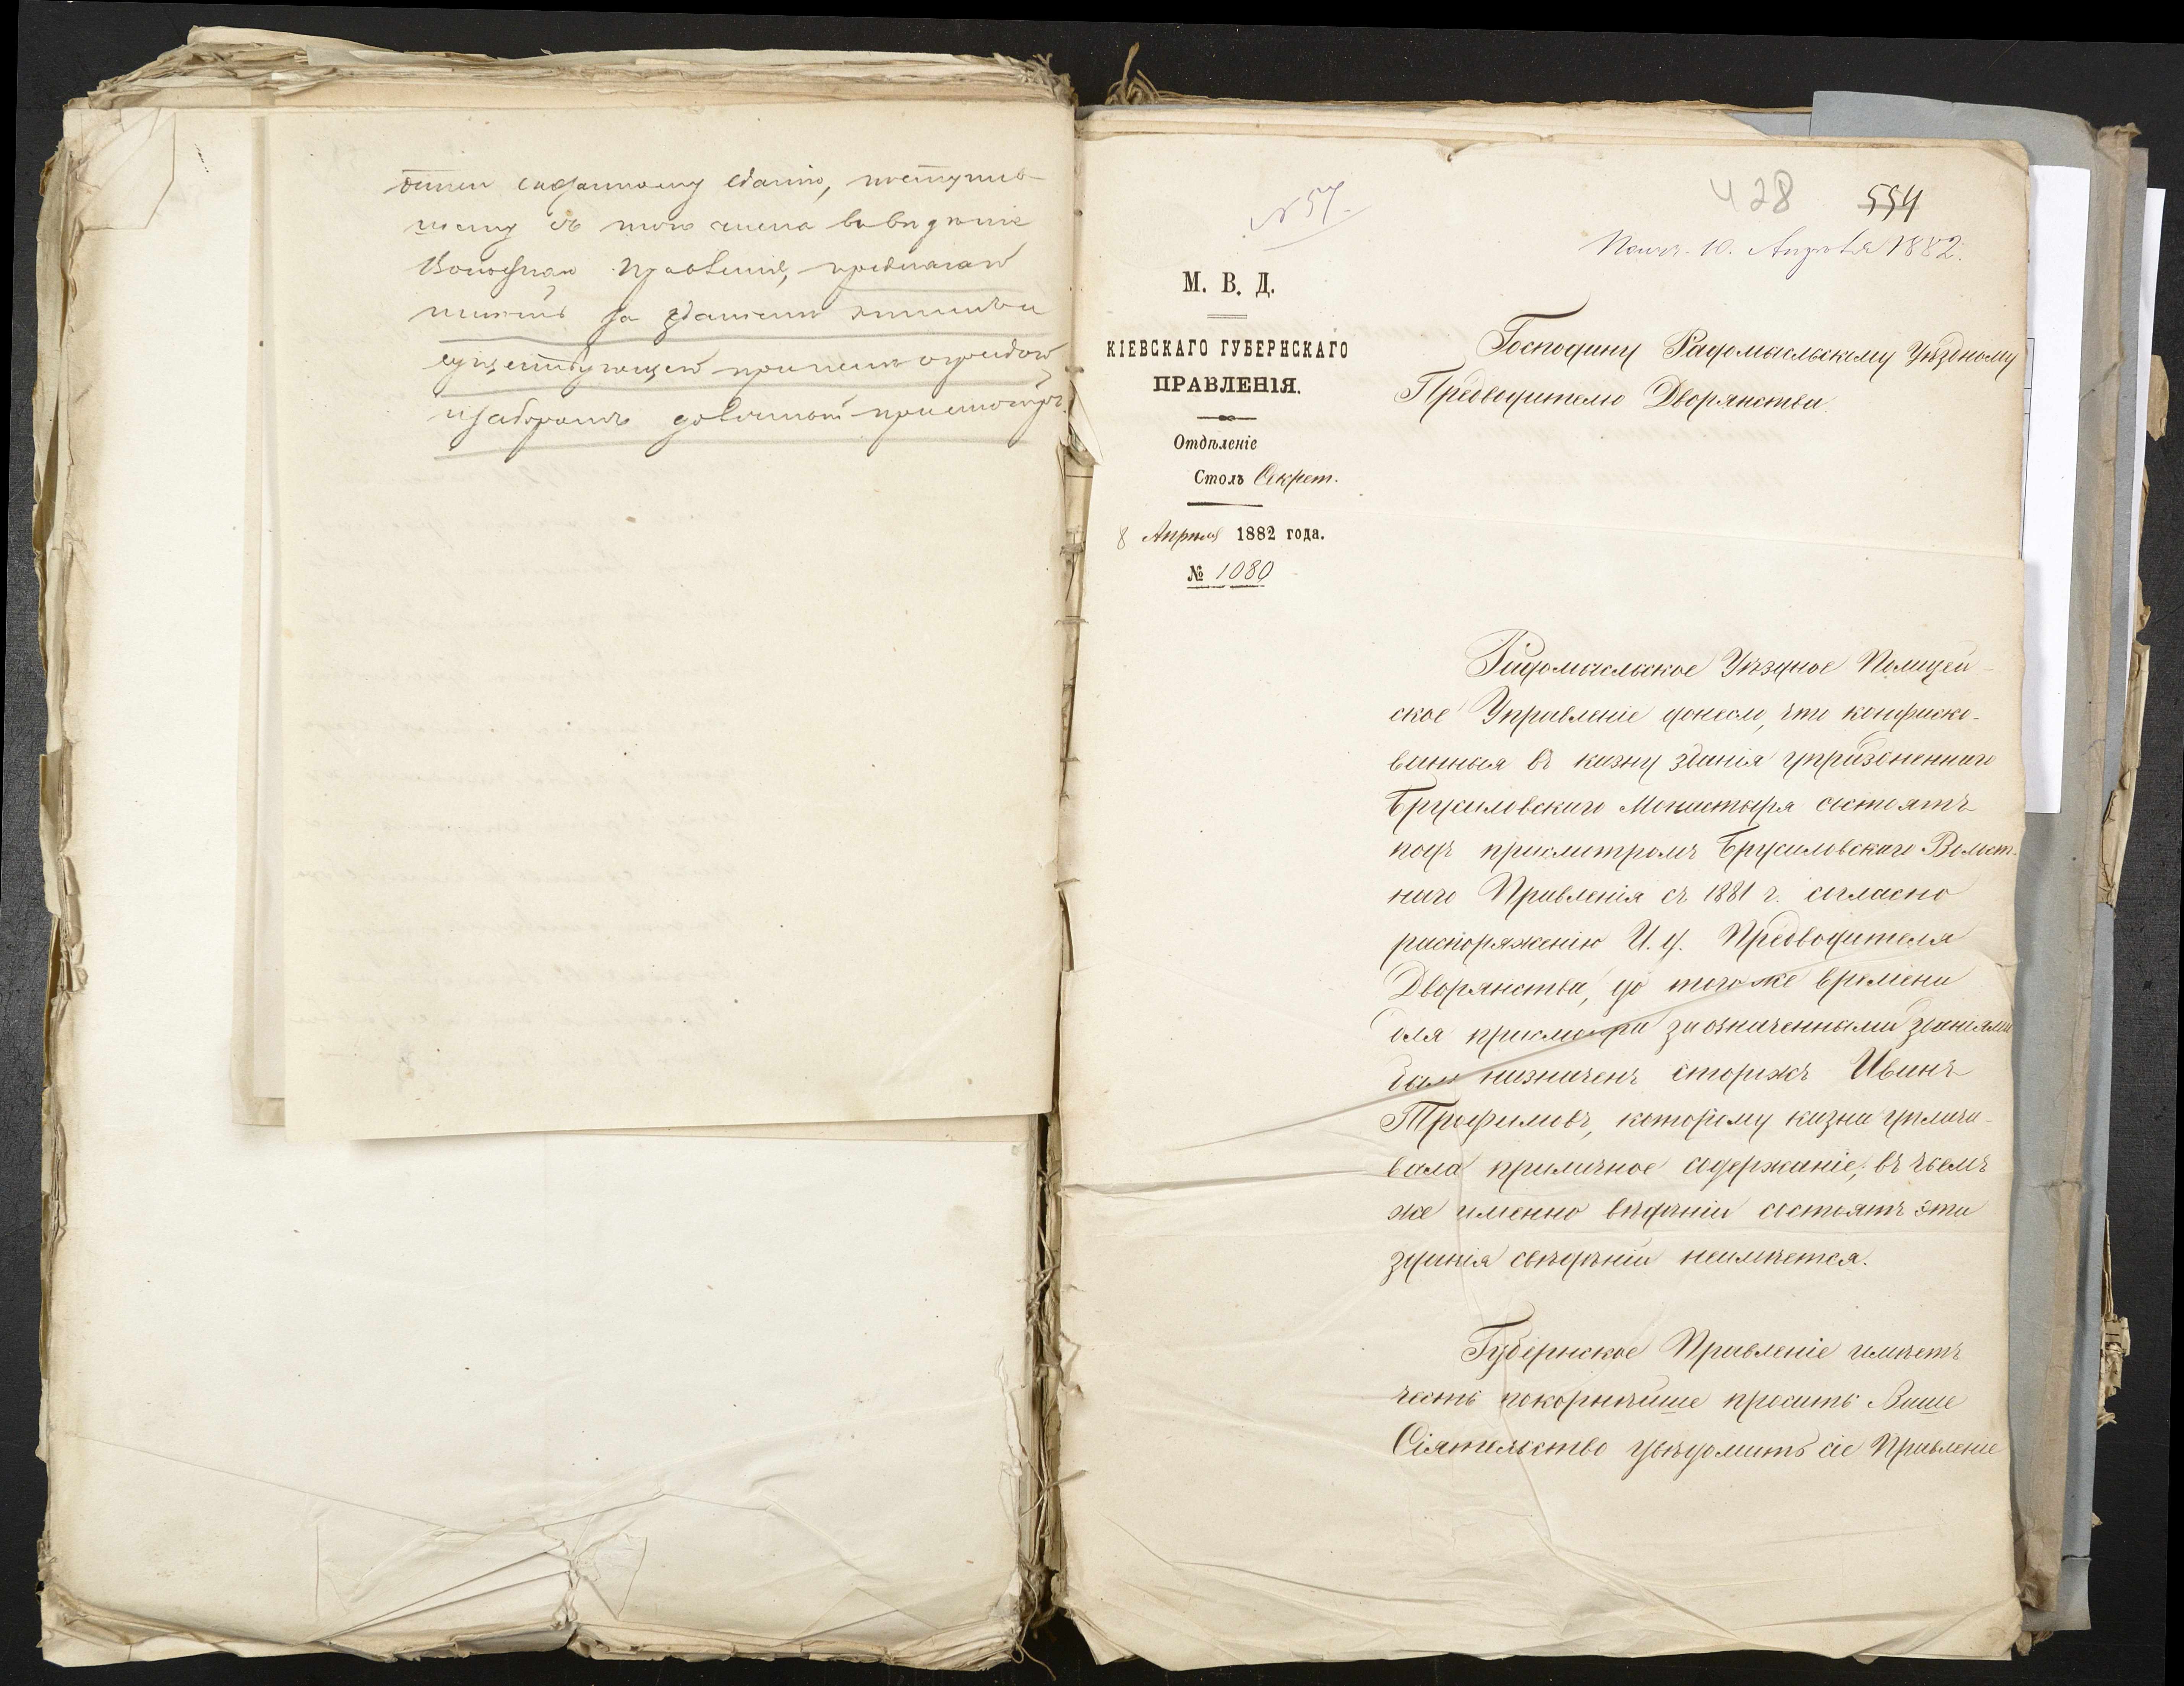 сказанному зданію, поступив-
шему съ того числа въ вѣдѣніе
Волостнаго Правленія, предлагаю
за зданіемъ
существующей
и заборомъ
№ 57.
428 554
Получ. 10. Апрѣля 1882.
М. В. Д.
КІЕВСКАГО ГУБЕРНСКАГО
ПРАВЛЕНІЯ.
Отдѣленіе
Столъ Секрет.
8 Апрѣля 1882 года.
№ 1080
Господину Радомысльскому Уѣздному
Предводителю Дворянства.
Радомысльское Уѣздное Полицей-
ское Управленіе донесло, что конфиско-
ванныя въ казну зданія упраздненнаго
Брусиловскаго Монастыря состоятъ
подъ присмотромъ Брусиловскаго Волост-
наго Правленія съ 1881 г. согласно
распоряженію И. д. Предводителя
Дворянства, до того же времени
для присмотра за означенными зданіями
былъ назначенъ сторожъ Иванъ
Трофимовъ, которому казна уплачи-
вала приличное содержаніе; въ чьемъ
же именно вѣдѣніи состоятъ эти
зданія свѣдѣній неимѣется.
Губернское Правленіе имѣетъ
честь покорнѣйше просить Ваше
Сіятельство увѣдомить сіе Правленіе